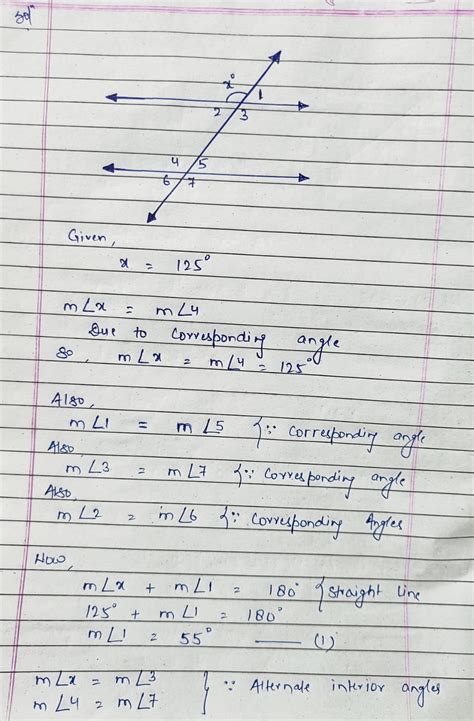 Solⁿ
x° 1
2 3
4 5
6 7
Given,
x = 125°
m∠x = m∠4
Due to corresponding angle
So, m∠x = m∠4 = 125°
Also,
m∠1 = m∠5 {∵ corresponding angle
Also
m∠3 = m∠7 {∵ Corresponding angle
Also,
m∠2 = m∠6 {∵ Corresponding Angles
Now,
m∠x + m∠1 = 180° {straight line
125° + m∠1 = 180°
m∠1 = 55° —— (1)
m∠x = m∠3
m∠4 = m∠7 } ∵ Alternate interior angles